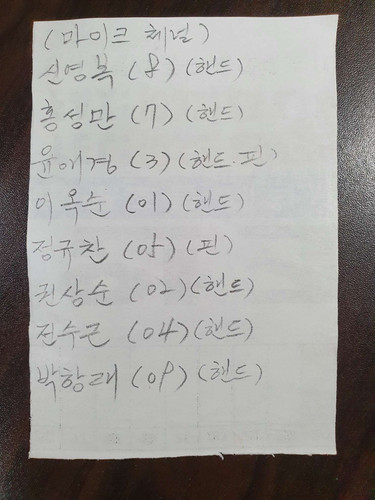 (마이크 채널)
신영복 (8) (핸드)
홍성만 (7) (핸드)
윤애경 (3) (핸드.핀)
이옥순 (01) (핸드)
정규찬 (05) (핀)
권상순 (02) (핸드)
진수근 (04) (핸드)
박항래 (09) (핸드)